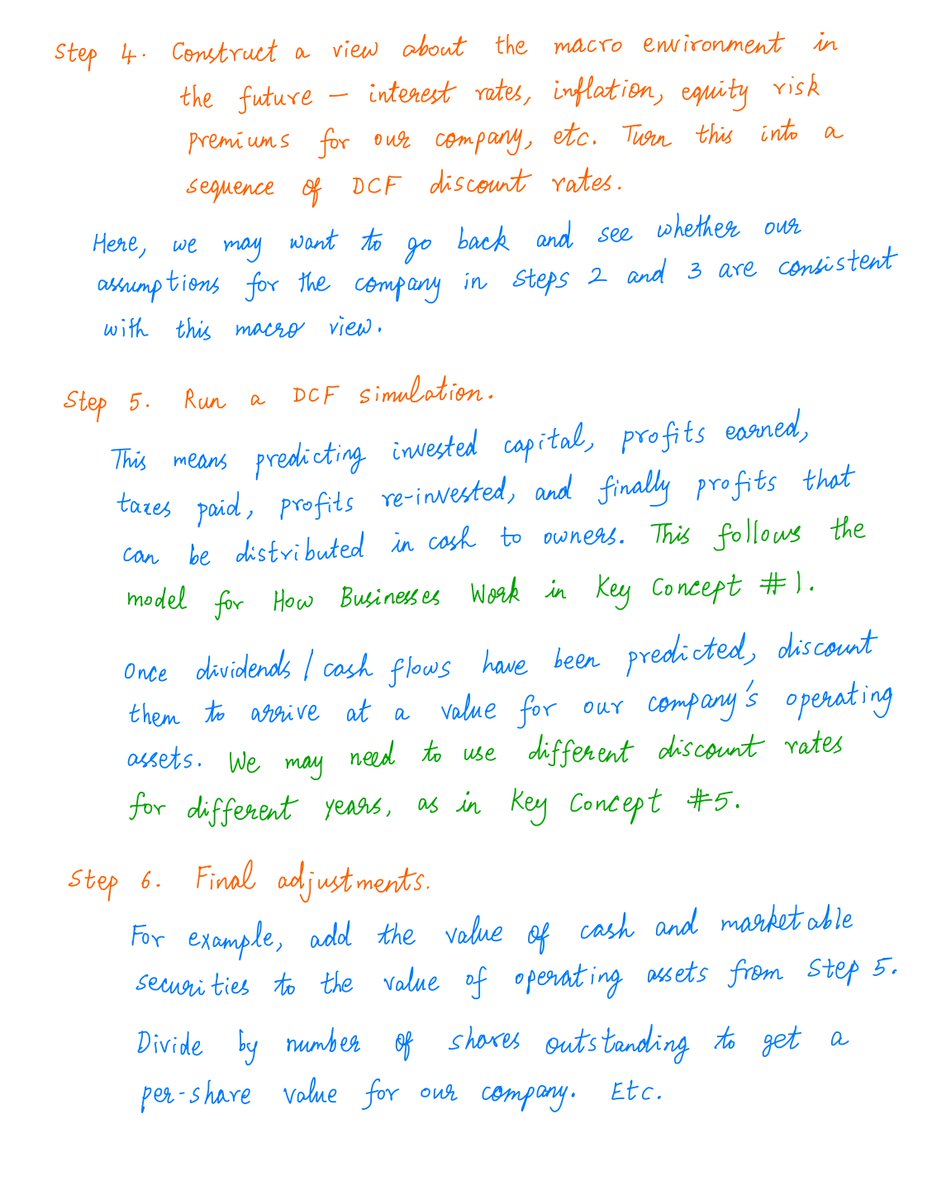 Step 4. Construct a view about the macro environment in
the future — interest rates, inflation, equity risk
premiums for our company, etc. Turn this into a
sequence of DCF discount rates.
Here, we may want to go back and see whether our
assumptions for the company in Steps 2 and 3 are consistent
with this macro view.
Step 5. Run a DCF simulation.
This means predicting invested capital, profits earned,
taxes paid, profits re-invested, and finally profits that
can be distributed in cash to owners. This follows the
model for How Businesses Work in Key Concept #1.
Once dividends/cash flows have been predicted, discount
them to arrive at a value for our company's operating
assets. We may need to use different discount rates
for different years, as in Key Concept #5.
Step 6. Final adjustments.
For example, add the value of cash and marketable
securities to the value of operating assets from Step 5.
Divide by number of shares outstanding to get a
per-share value for our company. Etc.